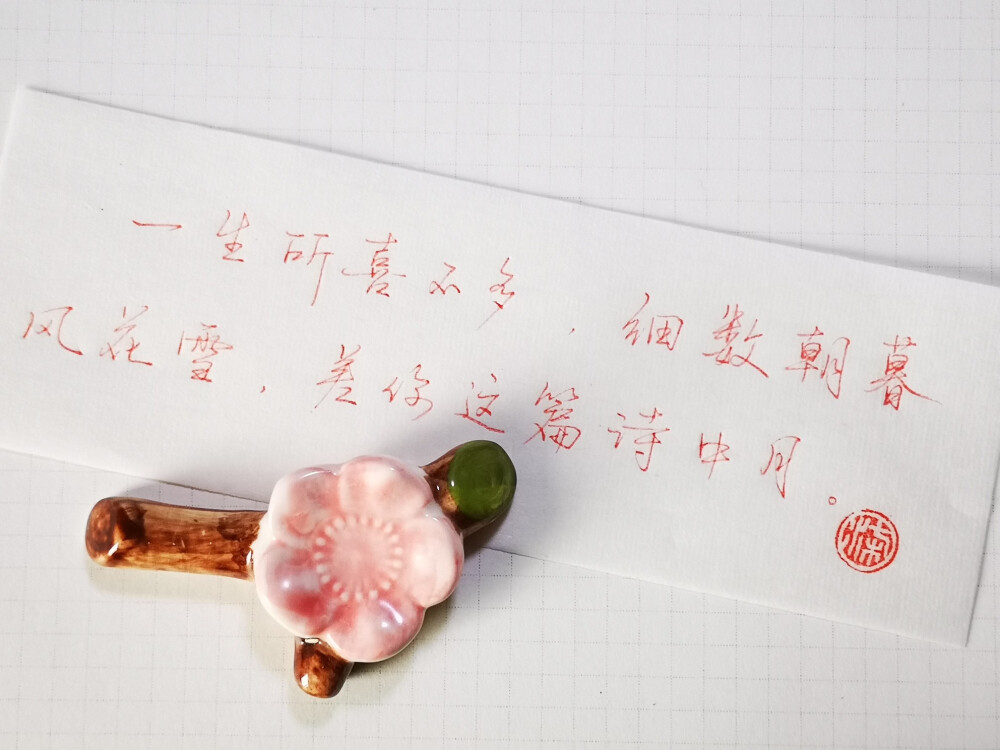 一生所喜不多，细数朝暮
风花雪，差你这篇诗中月。